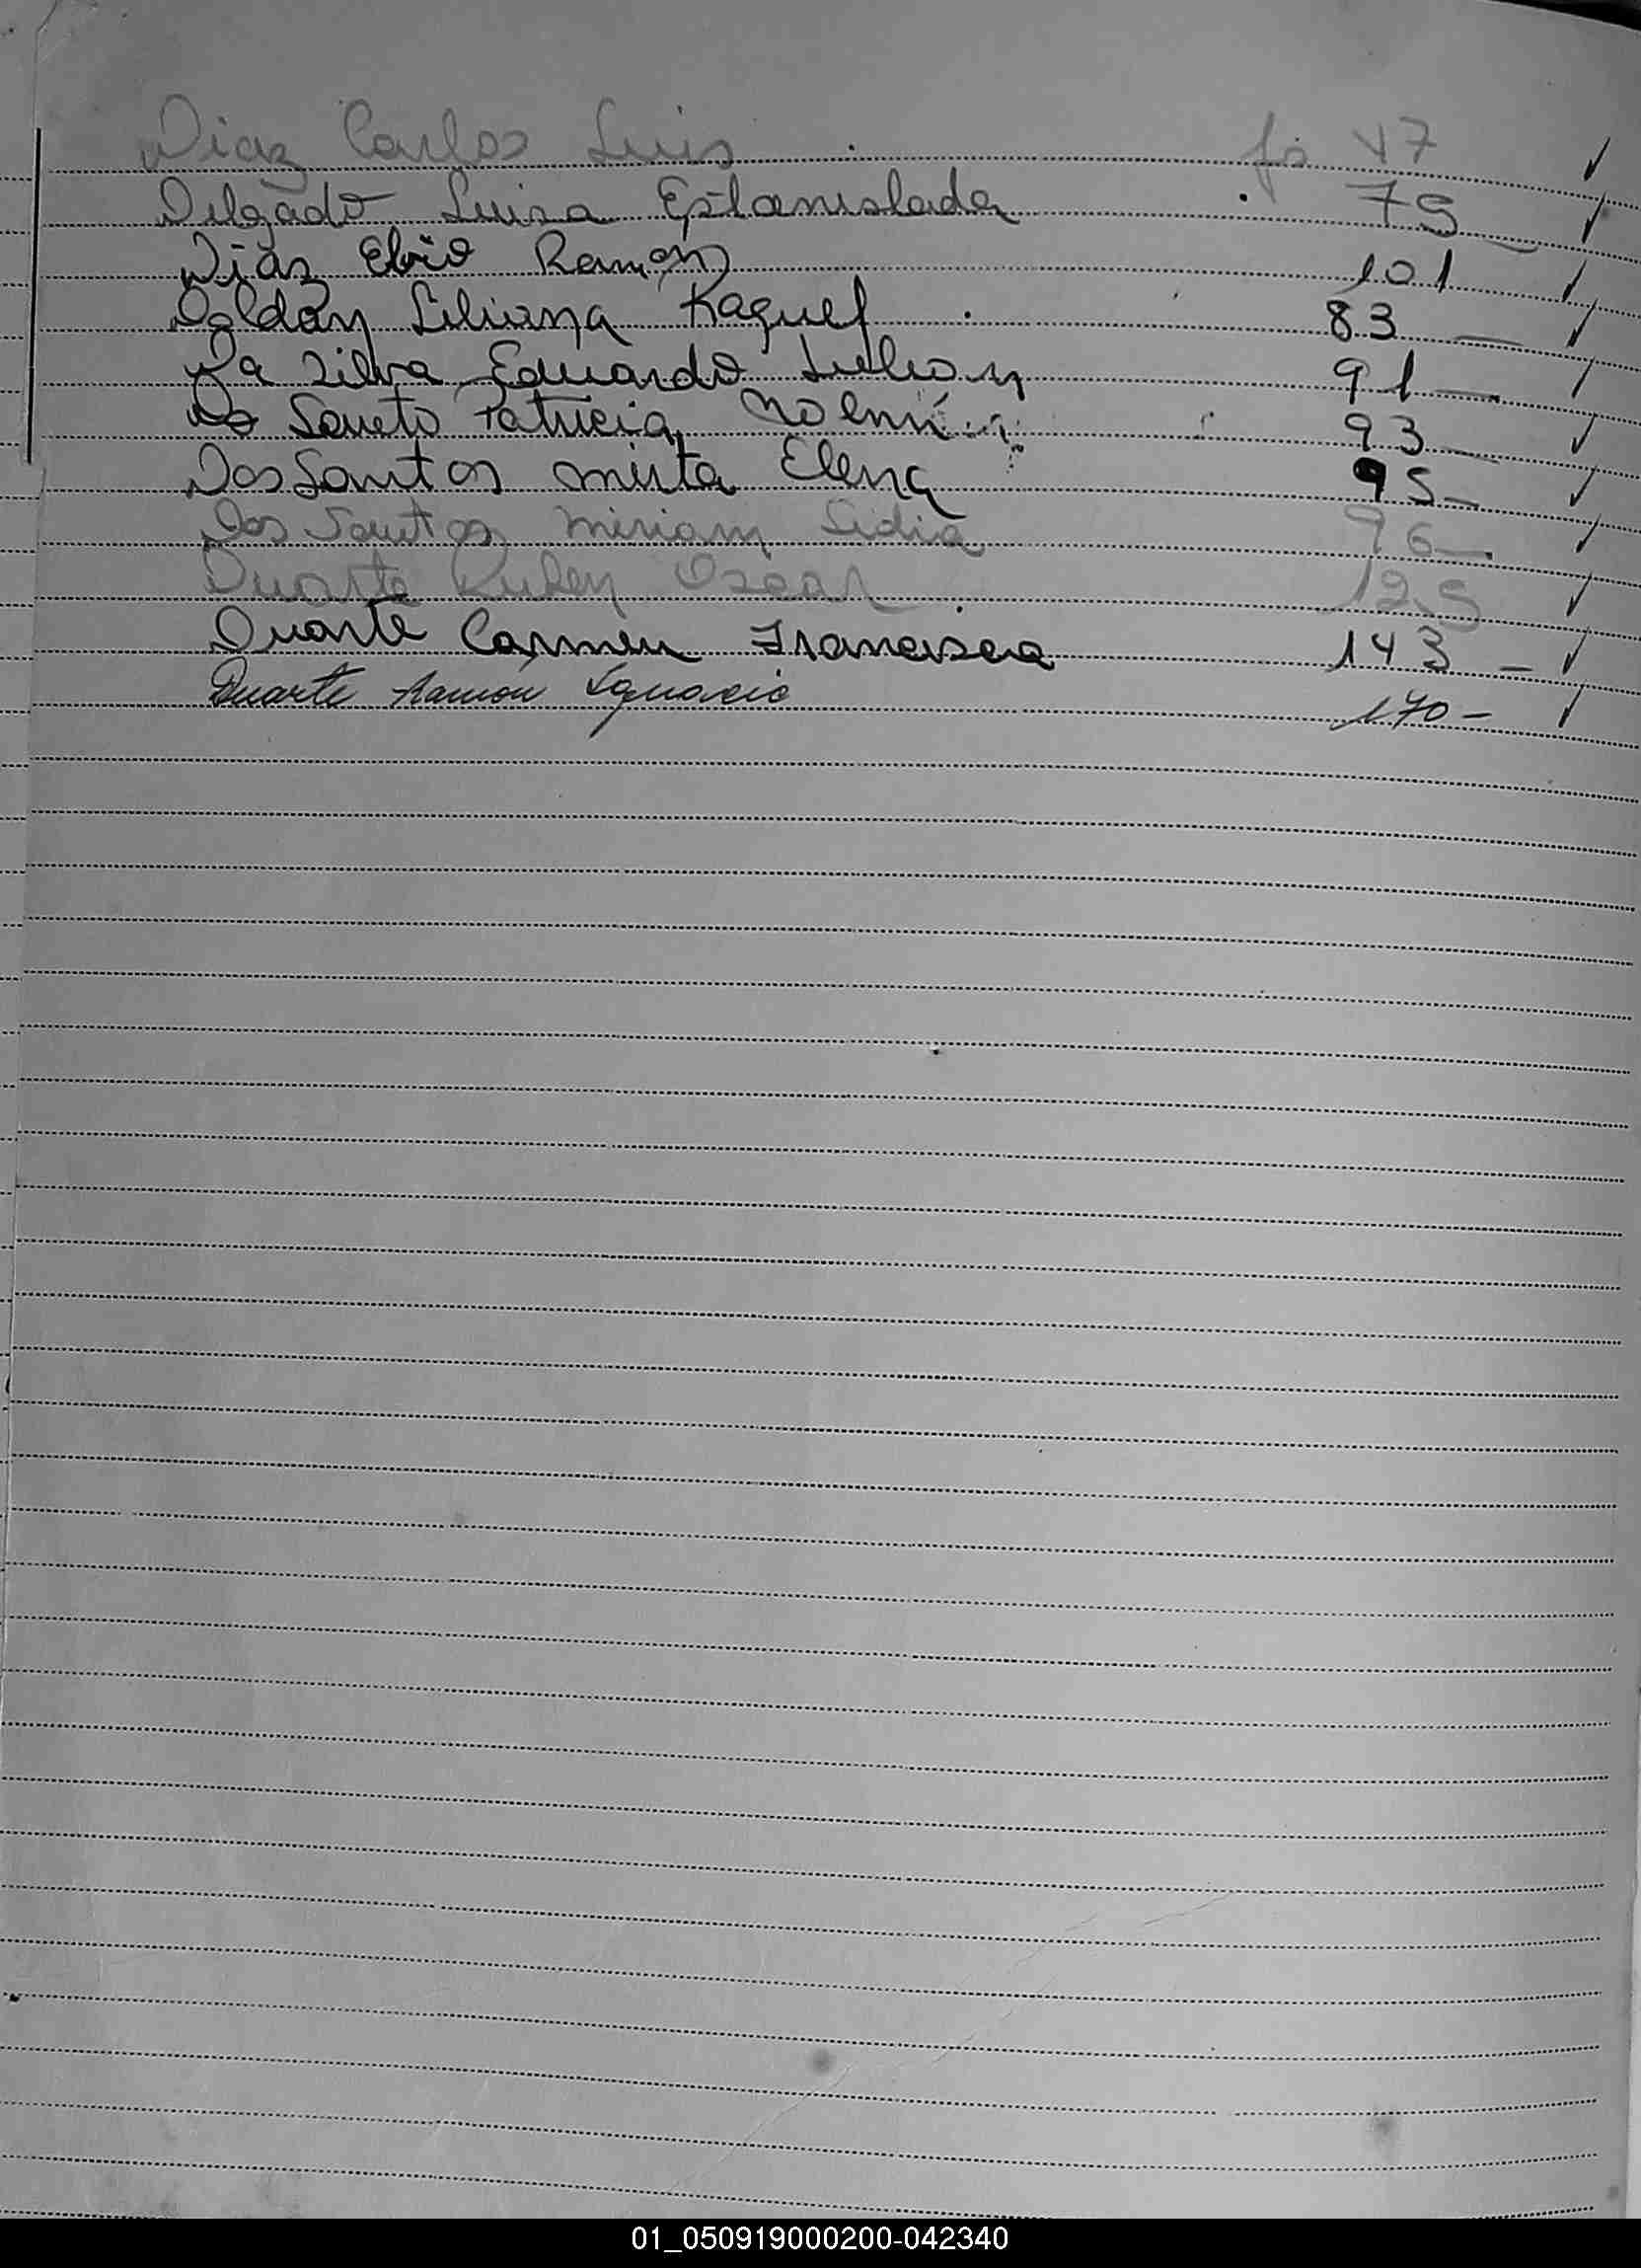 Diaz Carlos Luis fs 47 ✓
Delgado Luisa Estanislada 75 ✓
Diaz Elvio Ramon 101 ✓
Doldan Liliana Raquel 83 — ✓
Da Silva Eduardo Julian 91 — ✓
Do Souto Patricia Noemi 93 — ✓
Dos Santos Mirta Elena 95 — ✓
Dos Santos Miriam Lidia 96 — ✓
Duarte Ruben Oscar 125 ✓
Duarte Carmen Francisca 143 – ✓
Duarte Ramón Ignacio 170 – ✓
01_050919000200-042340